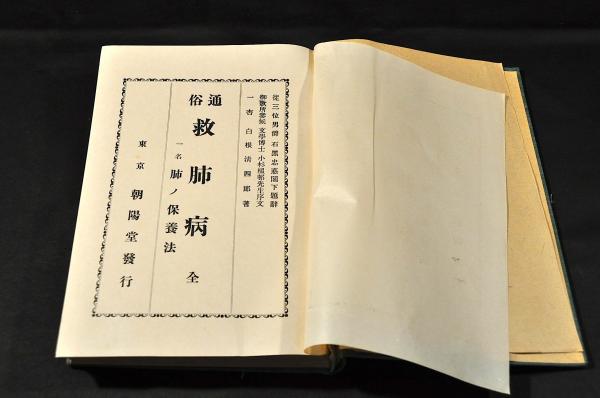 從三位男爵 石黑忠悳閣下題辭
御歌所參候 文學博士 小杉榲邨先生序文
一杏 白根淸四郎 著
通俗 救肺病 全
一名 肺ノ保養法
東京 朝陽堂發行